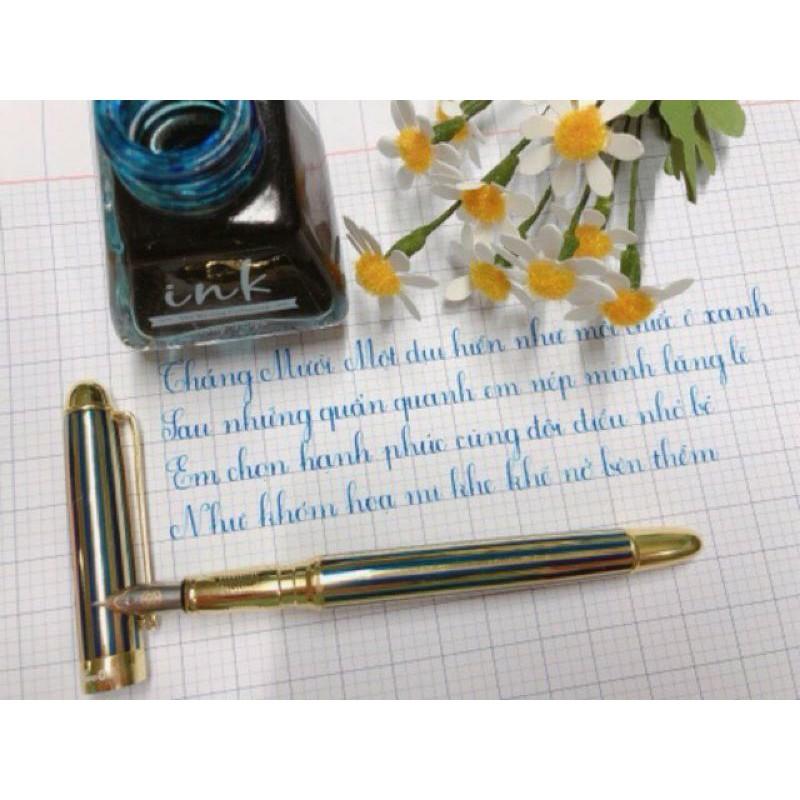 ink
Tháng Mười Một dịu hiền như một chiếc ô xanh
Sau những quẩn quanh em nép mình lặng lẽ
Em chọn hạnh phúc cùng đôi điều nhỏ bé
Như khóm hoạ mi khe khẽ nở bên thềm